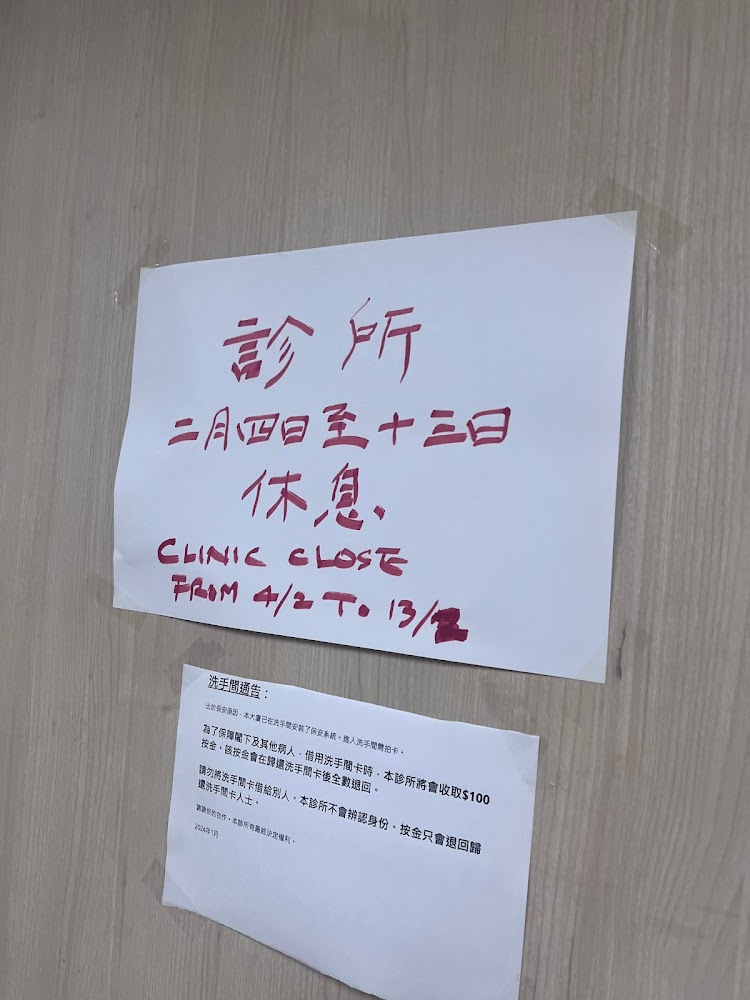 診所
二月四日至十三日
休息、
CLINIC CLOSE
FROM 4/2 TO 13/2
洗手間通告：
出於保安原因，本大廈已在洗手間安裝了保安系統。進入洗手間需拍卡。
為了保障閣下及其他病人，借用洗手間卡時，本診所將會收取$100
按金，該按金會在歸還洗手間卡後全數退回。
請勿將洗手間卡借給別人，本診所不會辨認身份。按金只會退回歸
還洗手間卡人士。
謝謝你的合作。本診所有最終決定權利。
2024年1月